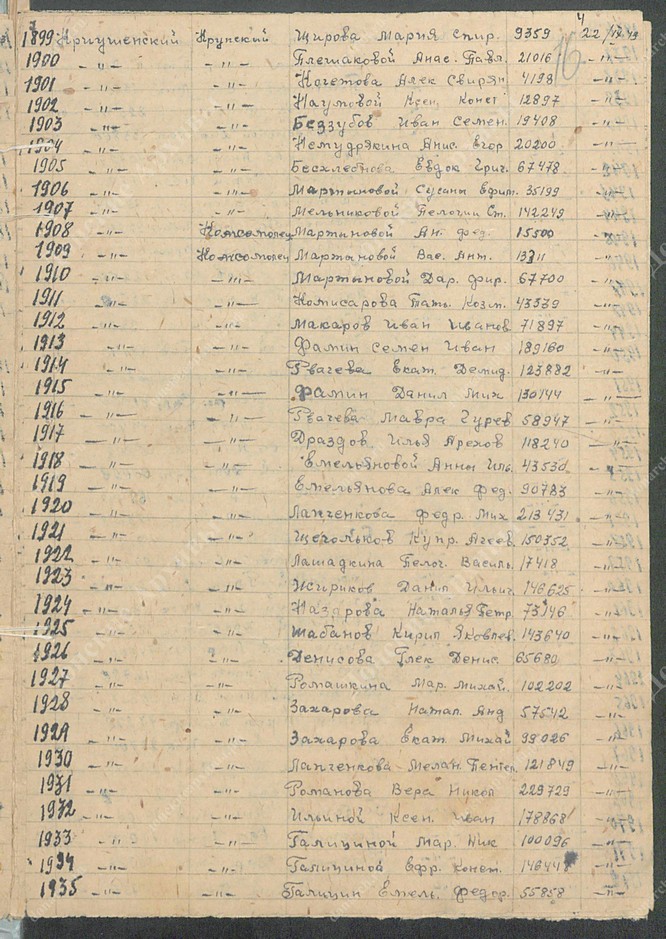 4
1899 Криушенский Крупский Щирова Мария Спир. 9359 22/IV-49
16
1900 -"- -"- Плешаковой Анас. Павл. 21016 -"-
1901 -"- -"- Кочетова Алек Свирян. 4198 -"-
1902 -"- -"- Наумовой Ксен Конст 12897 -"-
1903 -"- -"- Беззубов Иван Семен. 19408 -"-
1904 -"- -"- Немудрякина Анис. Егор 20200 -"-
1905 -"- -"- Бесхлебнова Евдок Григ. 67478 -"-
1906 -"- -"- Мартыновой Сусаны Ефим. 35199 -"-
1907 -"- -"- Мельниковой Пелогии Ст. 142249 -"-
1908 -"- Комсомолец Мартыновой Ан. фед. 15500 -"-
1909 -"- Комсомолец Мартыновой Вас. Ант. 13311 -"-
1910 -"- -"- Мартыновой Дар. фир. 67700 -"-
1911 -"- -"- Комисарова Тать. Козм. 43539 -"-
1912 -"- -"- Макаров Иван Иванов. 71897 -"-
1913 -"- -"- Фамин Семен Иван 189160 -"-
1914 -"- -"- Рвачева Екат. Демид. 123882 -"-
1915 -"- -"- Фамин Данил Мих 130144 -"-
1916 -"- -"- Рвачева Мавра Гурев 58947 -"-
1917 -"- -"- Драздов Илья 118240 -"-
1918 -"- -"- Емельяновой Анны Иль. 43530 -"-
1919 -"- -"- Емельянова Алек фед. 90783 -"-
1920 -"- -"- Лапченкова федр. Мих 213431 -"-
1921 -"- -"- Щегольков Купр. 150352 -"-
1922 -"- -"- Лашадкина Пелог. Василь. 17418 -"-
1923 -"- -"- Жгириков Данил Ильич 146625 -"-
1924 -"- -"- Назарова Наталья Петр. 73146 -"-
1925 -"- -"- Шабанов Кирил Яковлев. 143640 -"-
1926 -"- -"- Денисова Глек Денис. 65680 -"-
1927 -"- -"- Ромашкина Мар. Михай. 102202 -"-
1928 -"- -"- Захарова Натал. Анд 57542 -"-
1929 -"- -"- Захарова Екат. Михай 99026 -"-
1930 -"- -"- Лапченкова Мелан. Пентел 121849 -"-
1931 -"- -"- Романова Вера Никол 229729 -"-
1932 -"- -"- Ильиной Ксен. Иван 178868 -"-
1933 -"- -"- Галициной Мар. Ник 100096 -"-
1934 -"- -"- Галициной Ефр. Конст. 146448 -"-
1935 -"- -"- Галицин Емель. федор. 55858 -"-